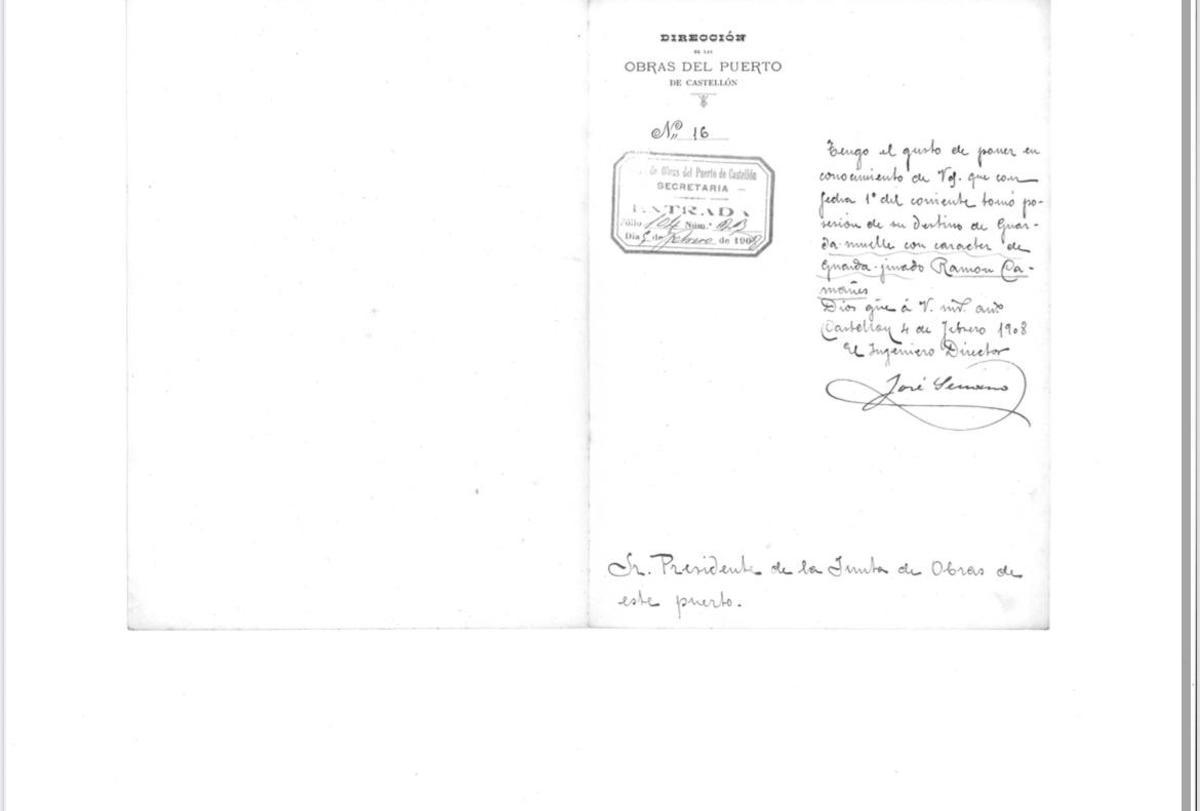 DIRECCIÓN
DE LAS
OBRAS DEL PUERTO
DE CASTELLÓN
Nº 16
de Obras del Puerto de Castellón
SECRETARIA
ENTRADA
Folio 104 Núm.º
Dia 5 de Febrero de 1908
Tengo el gusto de poner en
conocimiento de que con
fecha 1º del corriente tomó po-
sesión de su destino de Guar-
da-muelle con caracter de
Guarda-jurado Ramon Ca-
mañes
Dios gue á V. mḷ. añs
Castellon 4 de Febrero 1908
El Ingeniero Director
José Serrano
Sr. Presidente de la Junta de Obras de
este puerto.